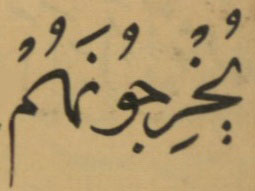 يُخْرِجُونَهُمُ